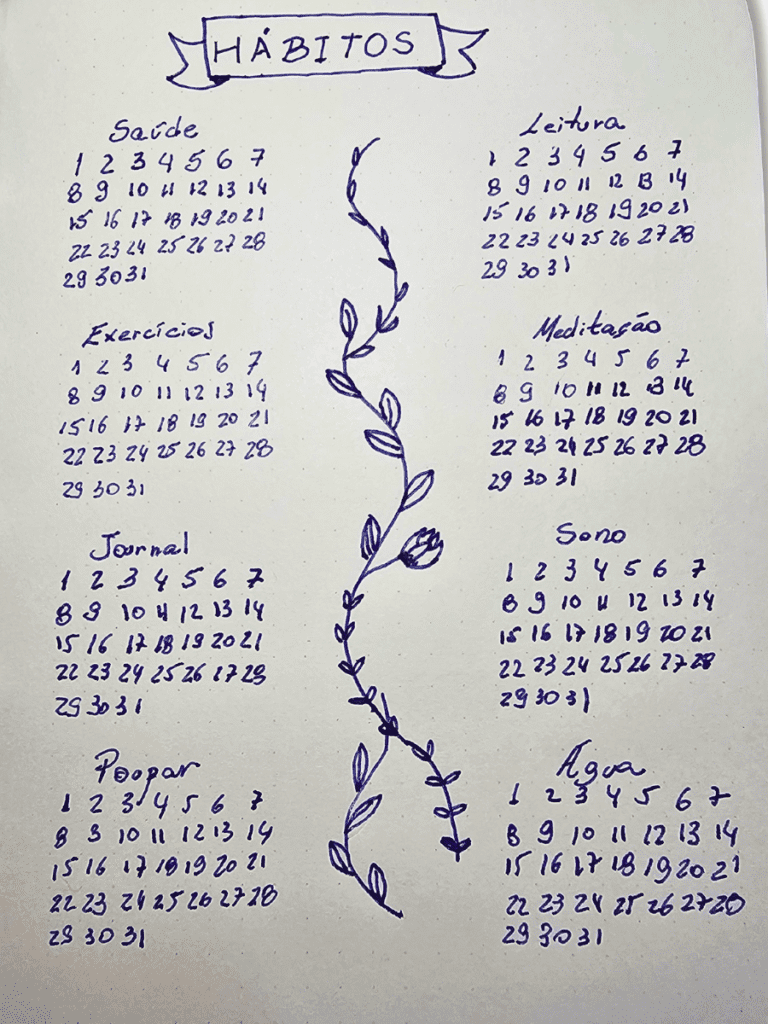 HÁBITOS
Saúde
1 2 3 4 5 6 7
8 9 10 11 12 13 14
15 16 17 18 19 20 21
22 23 24 25 26 27 28
29 30 31
Exercícios
1 2 3 4 5 6 7
8 9 10 11 12 13 14
15 16 17 18 19 20 21
22 23 24 25 26 27 28
29 30 31
Journal
1 2 3 4 5 6 7
8 9 10 11 12 13 14
15 16 17 18 19 20 21
22 23 24 25 26 27 28
29 30 31
Poupar
1 2 3 4 5 6 7
8 9 10 11 12 13 14
15 16 17 18 19 20 21
22 23 24 25 26 27 28
29 30 31
Leitura
1 2 3 4 5 6 7
8 9 10 11 12 13 14
15 16 17 18 19 20 21
22 23 24 25 26 27 28
29 30 31
Meditação
1 2 3 4 5 6 7
8 9 10 11 12 13 14
15 16 17 18 19 20 21
22 23 24 25 26 27 28
29 30 31
Sono
1 2 3 4 5 6 7
8 9 10 11 12 13 14
15 16 17 18 19 20 21
22 23 24 25 26 27 28
29 30 31
Água
1 2 3 4 5 6 7
8 9 10 11 12 13 14
15 16 17 18 19 20 21
22 23 24 25 26 27 28
29 30 31